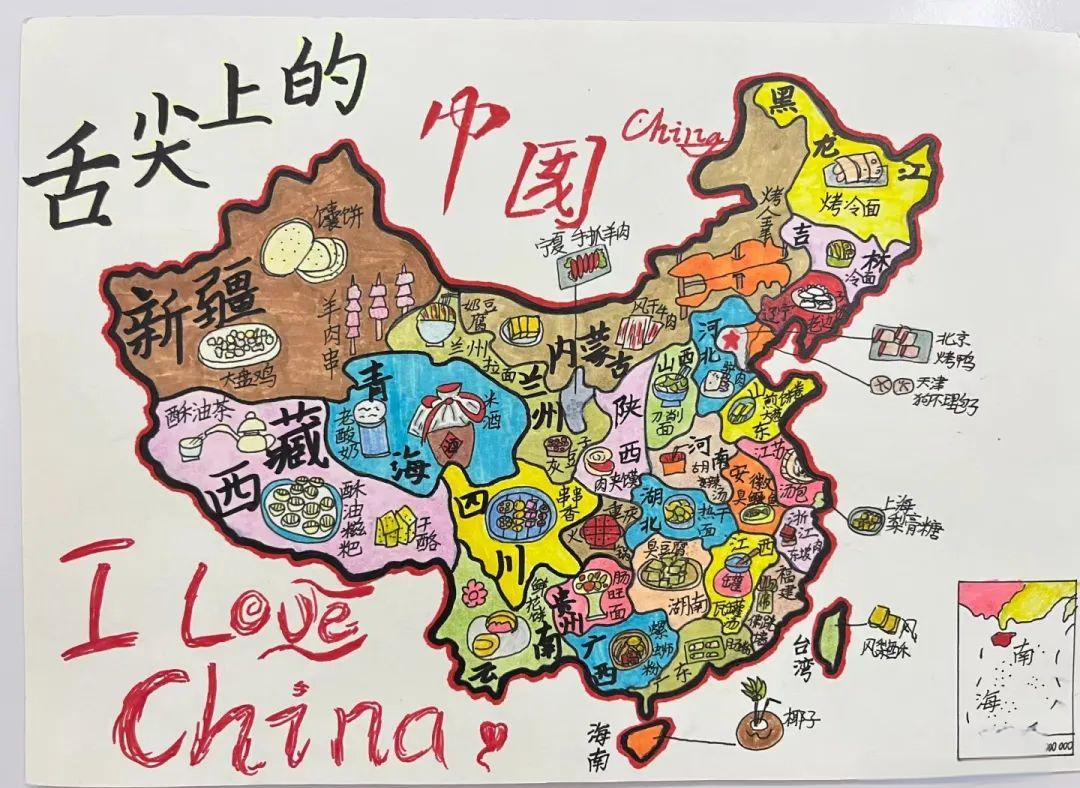 舌尖上的
中国
China
I Love
China
黑龙江
烤冷面
吉林
冷面
辽宁
内蒙古
烤全羊
风干牛肉
奶豆腐
宁夏 手抓羊肉
新疆
馕饼
羊肉串
大盘鸡
西藏
酥油茶
酥油糍粑
干酪
青海
老酸奶
米酒
兰州
兰州拉面
灰豆子
陕西
肉夹馍
山西
刀削面
河北
驴肉
北京
烤鸭
天津
狗不理包子
山东
煎饼卷大葱
河南
胡辣汤
江苏
汤包
安徽
臭鳜鱼
上海
梨膏糖
浙江
东坡肉
湖北
热干面
重庆
火锅
四川
串串香
贵州
肠旺面
云南
鲜花饼
湖南
臭豆腐
江西
瓦罐汤
罐
福建
佛跳墙
广西
螺蛳粉
广东
肠粉
台湾
凤梨酥
海南
椰子
酒
南
海